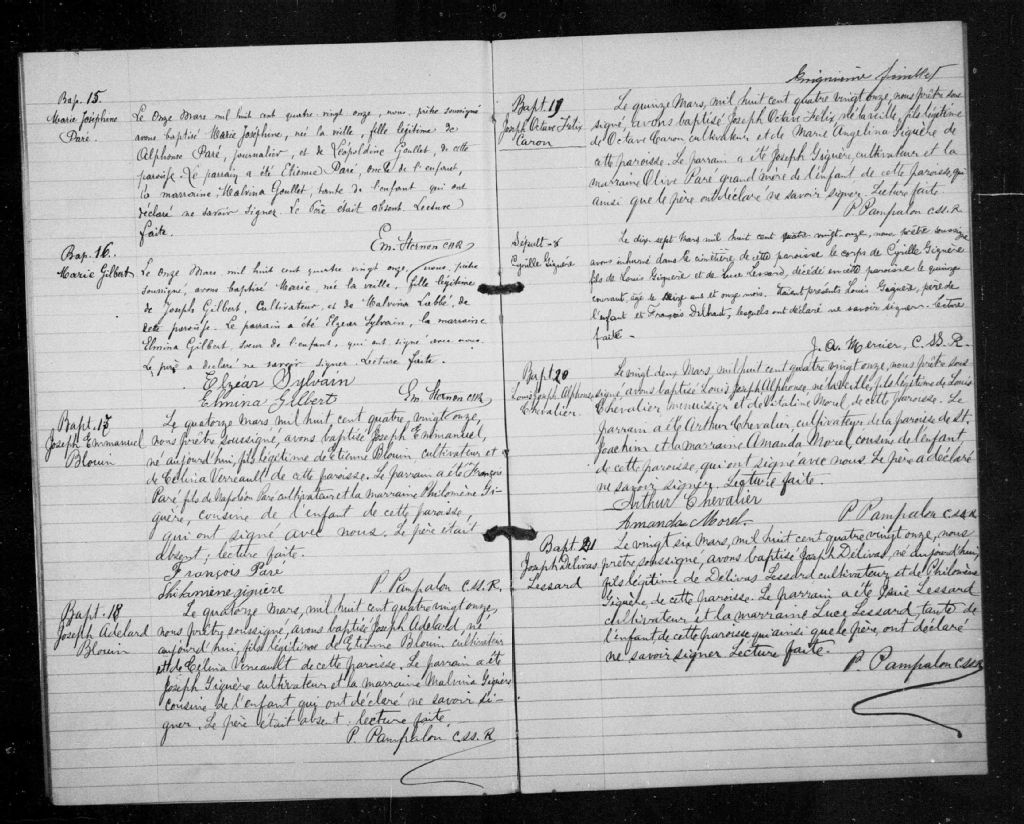 Bap. 15.
Marie Joséphine
Paré.
Le Onze Mars mil huit cent quatre vingt onze, nous, prêtre soussigné
avons baptisé Marie Joséphine, née la veille, fille légitime de
Alphonse Paré, journalier, et de Léopoldine Goullet, de cette
paroisse. Le parrain a été Etienne Paré, oncle de l'enfant,
la marraine, Malvina Goullet, tante de l'enfant qui ont
déclaré ne savoir signer. Le Père était absent. Lecture
faite.
Em. Hernon
Bap. 16.
Marie Gilbert.
Le Onze Mars, mil huit cent quatre vingt onze, nous, prêtre
soussigné, avons baptisé Marie, née la veille, fille légitime
de Joseph Gilbert, Cultivateur, et de Malvina Labbé, de
cette paroisse. Le parrain a été Elzear Sylvain, la marraine
Elmina Gilbert, soeur de l'enfant, qui ont signé avec nous.
Le père a déclaré ne savoir signer. Lecture faite.
Elzéar Sylvain
Elmina Gilbert
Em. Hernon
Bapt. 17
Joseph Emmanuel
Blouin
Le quatorze Mars, mil huit cent quatre vingt onze,
nous prêtre soussigné, avons baptisé Joseph Emmanuel,
né aujourd'hui, fils légitime de Etienne Blouin cultivateur et
de Celina Verreault de cette paroisse. Le parrain a été François
Paré fils de Napoléon Paré cultivateur et la marraine Philomène Gi-
guère, cousine de l'enfant de cette paroisse,
qui ont signé avec nous. Le père était
absent; lecture faite.
François Paré
Philomène giguere
P. Pampalon C.SS.R.
Bapt. 18
Joseph Adelard
Blouin
Le quatorze Mars, mil huit cent quatre vingt onze,
nous prêtre soussigné, avons baptisé Joseph Adelard, né
aujourd'hui, fils légitime de Etienne Blouin cultivateur
et de Celina Verreault de cette paroisse. Le parrain a été
Joseph Giguère cultivateur et la marraine Malvina Giguère
cousine de l'enfant qui ont déclaré ne savoir si-
gner. Le père était absent. lecture faite.
P. Pampalon C.SS.R
feuillet
Bapt. 19
Joseph Octave Felix
Caron
Le quinze Mars, mil huit cent quatre vingt onze, nous prêtre sous-
signé, avons baptisé Joseph Octave Felix, né la veille, fils légitime
de Octave Caron cultivateur et de Marie Angelina Giguère de
cette paroisse. Le parrain a été Joseph Giguère, cultivateur et la
marraine Olive Paré grand'mère de l'enfant de cette paroisse, qui
ainsi que le père ont déclaré ne savoir signer. Lecture faite
P. Pampalon C.SS.R
Sépult - 8
Cyrille Giguère
Le dix sept mars mil huit cent quatre vingt-onze, nous prêtre soussigné
avons inhumé dans le cimetière de cette paroisse le corps de Cyrille Giguère
fils de Louis Giguère et de Luce Lessard, décédé en cette paroisse le quinze
courant, âgé de ans et onze mois. Etaient présents Louis Giguère, père de
l'enfant et François lesquels ont déclaré ne savoir signer - lecture
faite -
J. A. Mercier, C.SS.R.
Bapt 20
Louis Joseph Alphonse
Chevalier.
Le vingt deux Mars, mil huit cent quatre vingt onze, nous prêtre sous
signé avons baptisé Louis Joseph Alphonse, né la veille, fils légitime de Louis
Chevalier menuisier et de Vitaline Morel, de cette paroisse. Le
parrain a été Arthur Chevalier, cultivateur de la paroisse de St.
Joachim et la marraine Amanda Morel, cousins de l'enfant,
de cette paroisse, qui ont signé avec nous. Le père a déclaré
ne savoir signer. Lecture faite.
Arthur Chevalier
Amanda Morel.
P. Pampalon C.SS.R
Bapt. 21
Joseph Délivas
Lessard
Le vingt six Mars, mil huit cent quatre vingt onze, nous
prêtre soussigné, avons baptisé Joseph Délivas, né aujourd'hui,
fils légitime de Délivas Lessard cultivateur et de Philomène
Giguère, de cette paroisse. Le parrain a été Josué Lessard
cultivateur et la marraine Luce Lessard tante de
l'enfant de cette paroisse qui ainsi que le père, ont déclaré
ne savoir signer. Lecture faite.
P. Pampalon C.SS.R